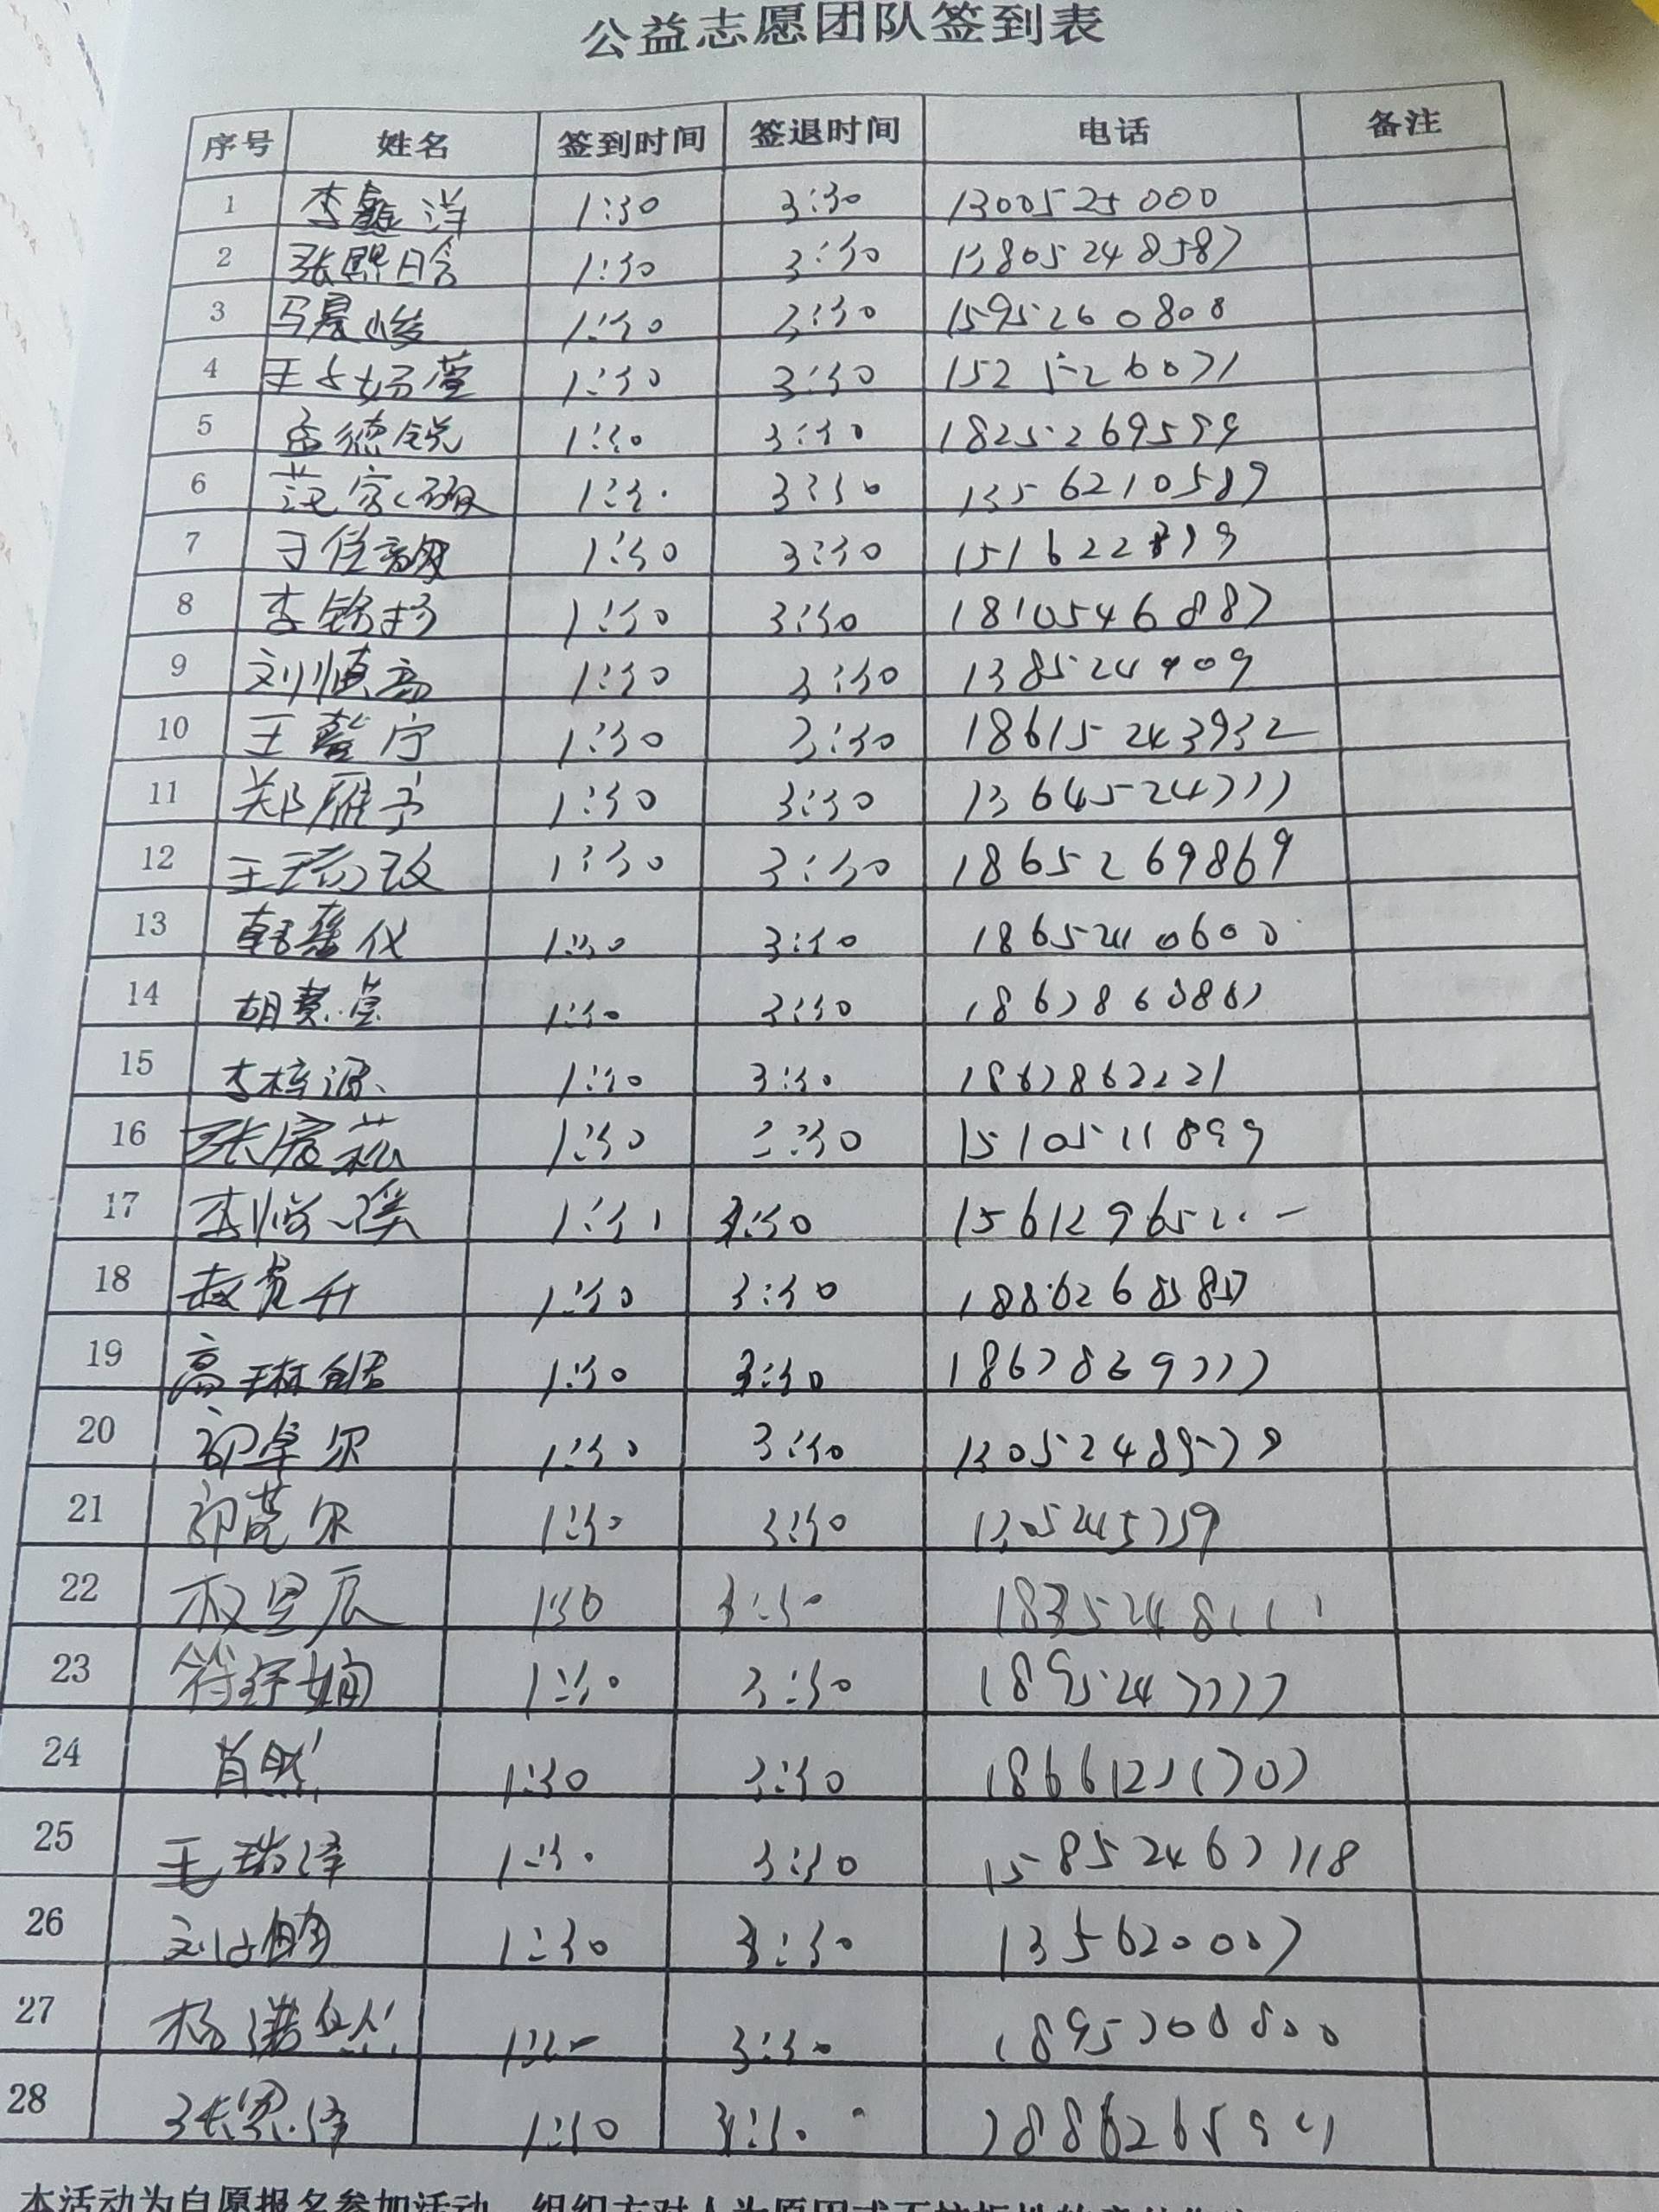 公益志愿团队签到表
序号 姓名 签到时间 签退时间 电话 备注
1 李鑫洋 1:30 3:30 1300525000
2 张熙晗 1:30 3:30 13805248587
3 马晨峻 1:30 3:30 1595260808
4 王妤萱 1:30 3:30 1525526071
5 孟德锐 1:30 3:30 1825269599
6 范家硕 1:30 3:30 1356210587
7 于佳 1:30 3:30 151622899
8 李铭扬 1:30 3:30 1810546887
9 刘慎高 1:30 3:30 138524909
10 王馨宁 1:30 3:30 18615243932
11 郑雁予 1:30 3:30 1364524777
12 王玟 1:30 3:30 1865269869
13 韩仪 1:30 3:30 18652410600
14 胡萱 1:30 3:30 1867860867
15 李梓源 1:30 3:30 1867862221
16 张宸菘 1:30 3:30 1510511899
17 李溪 3:30 1561296521
18 赵竟升 1:30 3:30
19 高琳舒 1:30 3:30 1867869777
20 卓尔 1:30 3:30 13052489579
21 莞尔 1:30 3:30 1305245759
22 权昱辰 1:30 3:30 18352481111
23 符钰娴 1:30 3:30 18952477777
24 肖然 1:30 3:30 18661221707
25 王瑞泽 1:30 3:30 15852467118
26 刘鹏 1:30 3:30 135620007
27 杨诺然 1:30 3:30 18957008800
28 张恩泽 1:30 3:30
本活动为自愿报名参加活动